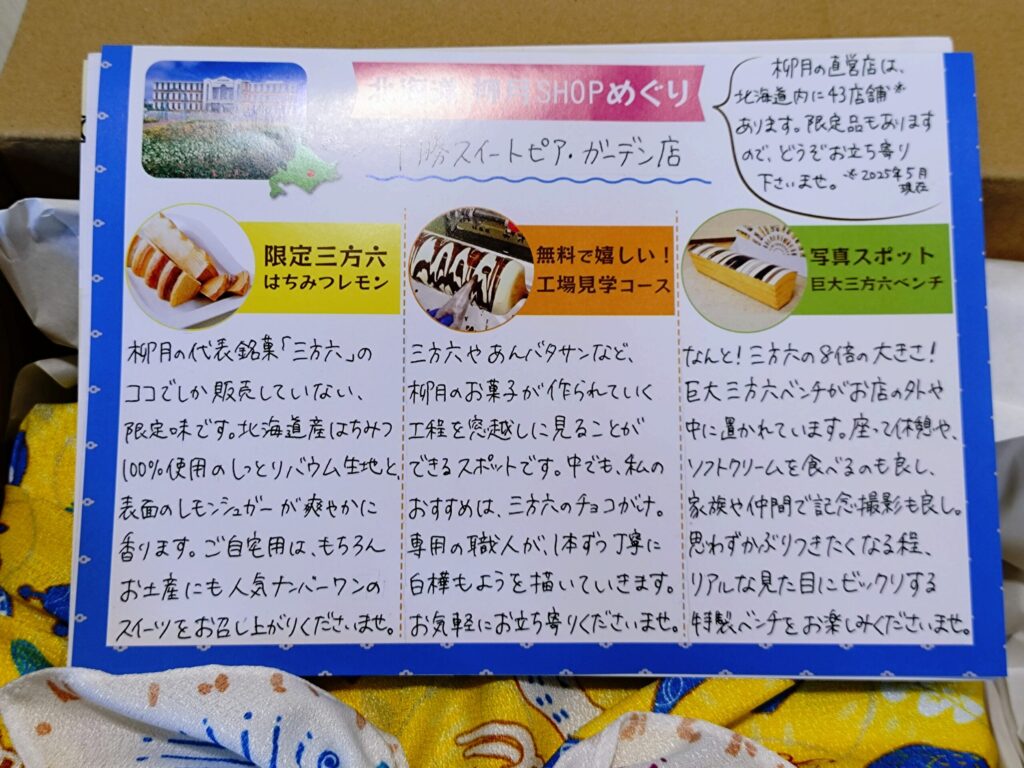 北海道 柳月SHOPめぐり
十勝スイートピア・ガーデン店
柳月の直営店は、
北海道内に43店舗※
あります。限定品もあります
ので、どうぞお立ち寄り
下さいませ。※2025年5月
現在
限定三方六
はちみつレモン
柳月の代表銘菓「三方六」の
ココでしか販売していない、
限定味です。北海道産はちみつ
100%使用のしっとりバウム生地と、
表面のレモンシュガーが爽やかに
香ります。ご自宅用は、もちろん
お土産にも人気ナンバーワンの
スイーツをお召し上がりくださいませ。
無料で嬉しい!
工場見学コース
三方六やあんバタサンなど、
柳月のお菓子が作られていく
工程を窓越しに見ることが
できるスポットです。中でも、私の
おすすめは、三方六のチョコがけ。
専用の職人が、1本ずつ丁寧に
白樺もようを描いていきます。
お気軽にお立ち寄りくださいませ。
写真スポット
巨大三方六ベンチ
なんと!三方六の8倍の大きさ!
巨大三方六ベンチがお店の外や
中に置かれています。座って休憩や、
ソフトクリームを食べるのも良し、
家族や仲間で記念撮影も良し。
思わずかぶりつきたくなる程、
リアルな見た目にビックリする
特製ベンチをお楽しみくださいませ。